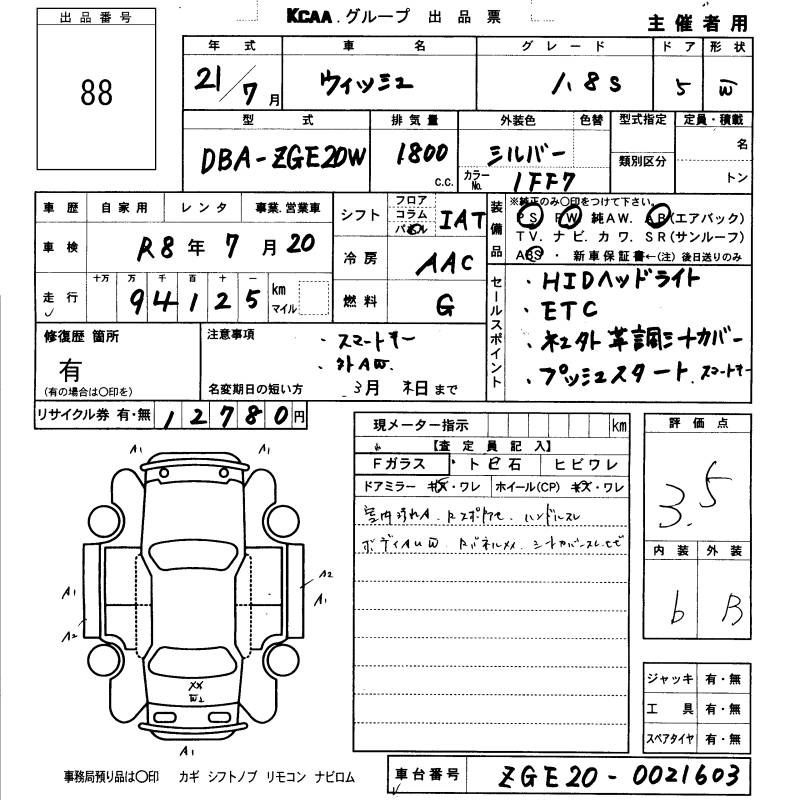 KCAA.グループ 出品票
主催者用
出品番号
88
年式 車名 グレード ドア 形状
21/7月 ウィッシュ 1.8S 5 W
型式 排気量 外装色 色替 型式指定 定員・積載
DBA-ZGE20W 1800 c.c. シルバー 名
類別区分
カラーNo. 1FF7 トン
車歴 自家用 レンタ 事業.営業車
車検 R8年7月20
走行 十万 万 千 百 十 一
94125 km マイル
シフト フロア コラム パネル IAT
冷房 AAC
燃料 G
装備品 ※純正のみ〇印をつけて下さい。
PS PW 純AW. AB(エアバック)
TV. ナビ. カワ. SR(サンルーフ)
ABS・ 新車保証書←(注)後日送りのみ
セールスポイント
・HIDヘッドライト
・ETC
・革調シートカバー
・プッシュスタート スマートキー
修復歴 箇所
有
(有の場合は〇印を)
注意事項 ・スマートキー
・外AW
名変期日の短い方 3月末日まで
リサイクル券 有・無 12780円
現メーター指示 km
【査定員記入】
Fガラス ・トビ石 ヒビワレ
ドアミラー キズ・ワレ ホイール(CP) キズ・ワレ
室内汚れA. ハンドルスレ
ボディAUW.
評価点
3.5
内装 外装
b B
A1 A1
A1 A2
A2 A1
XX
W1
A1 A1
ジャッキ 有・無
工具 有・無
スペアタイヤ 有・無
事務局預り品は〇印 カギ シフトノブ リモコン ナビロム
車台番号 ZGE20-0021603